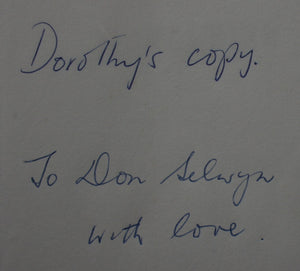 Dorothy's copy.
To Don Selwyn
with love.